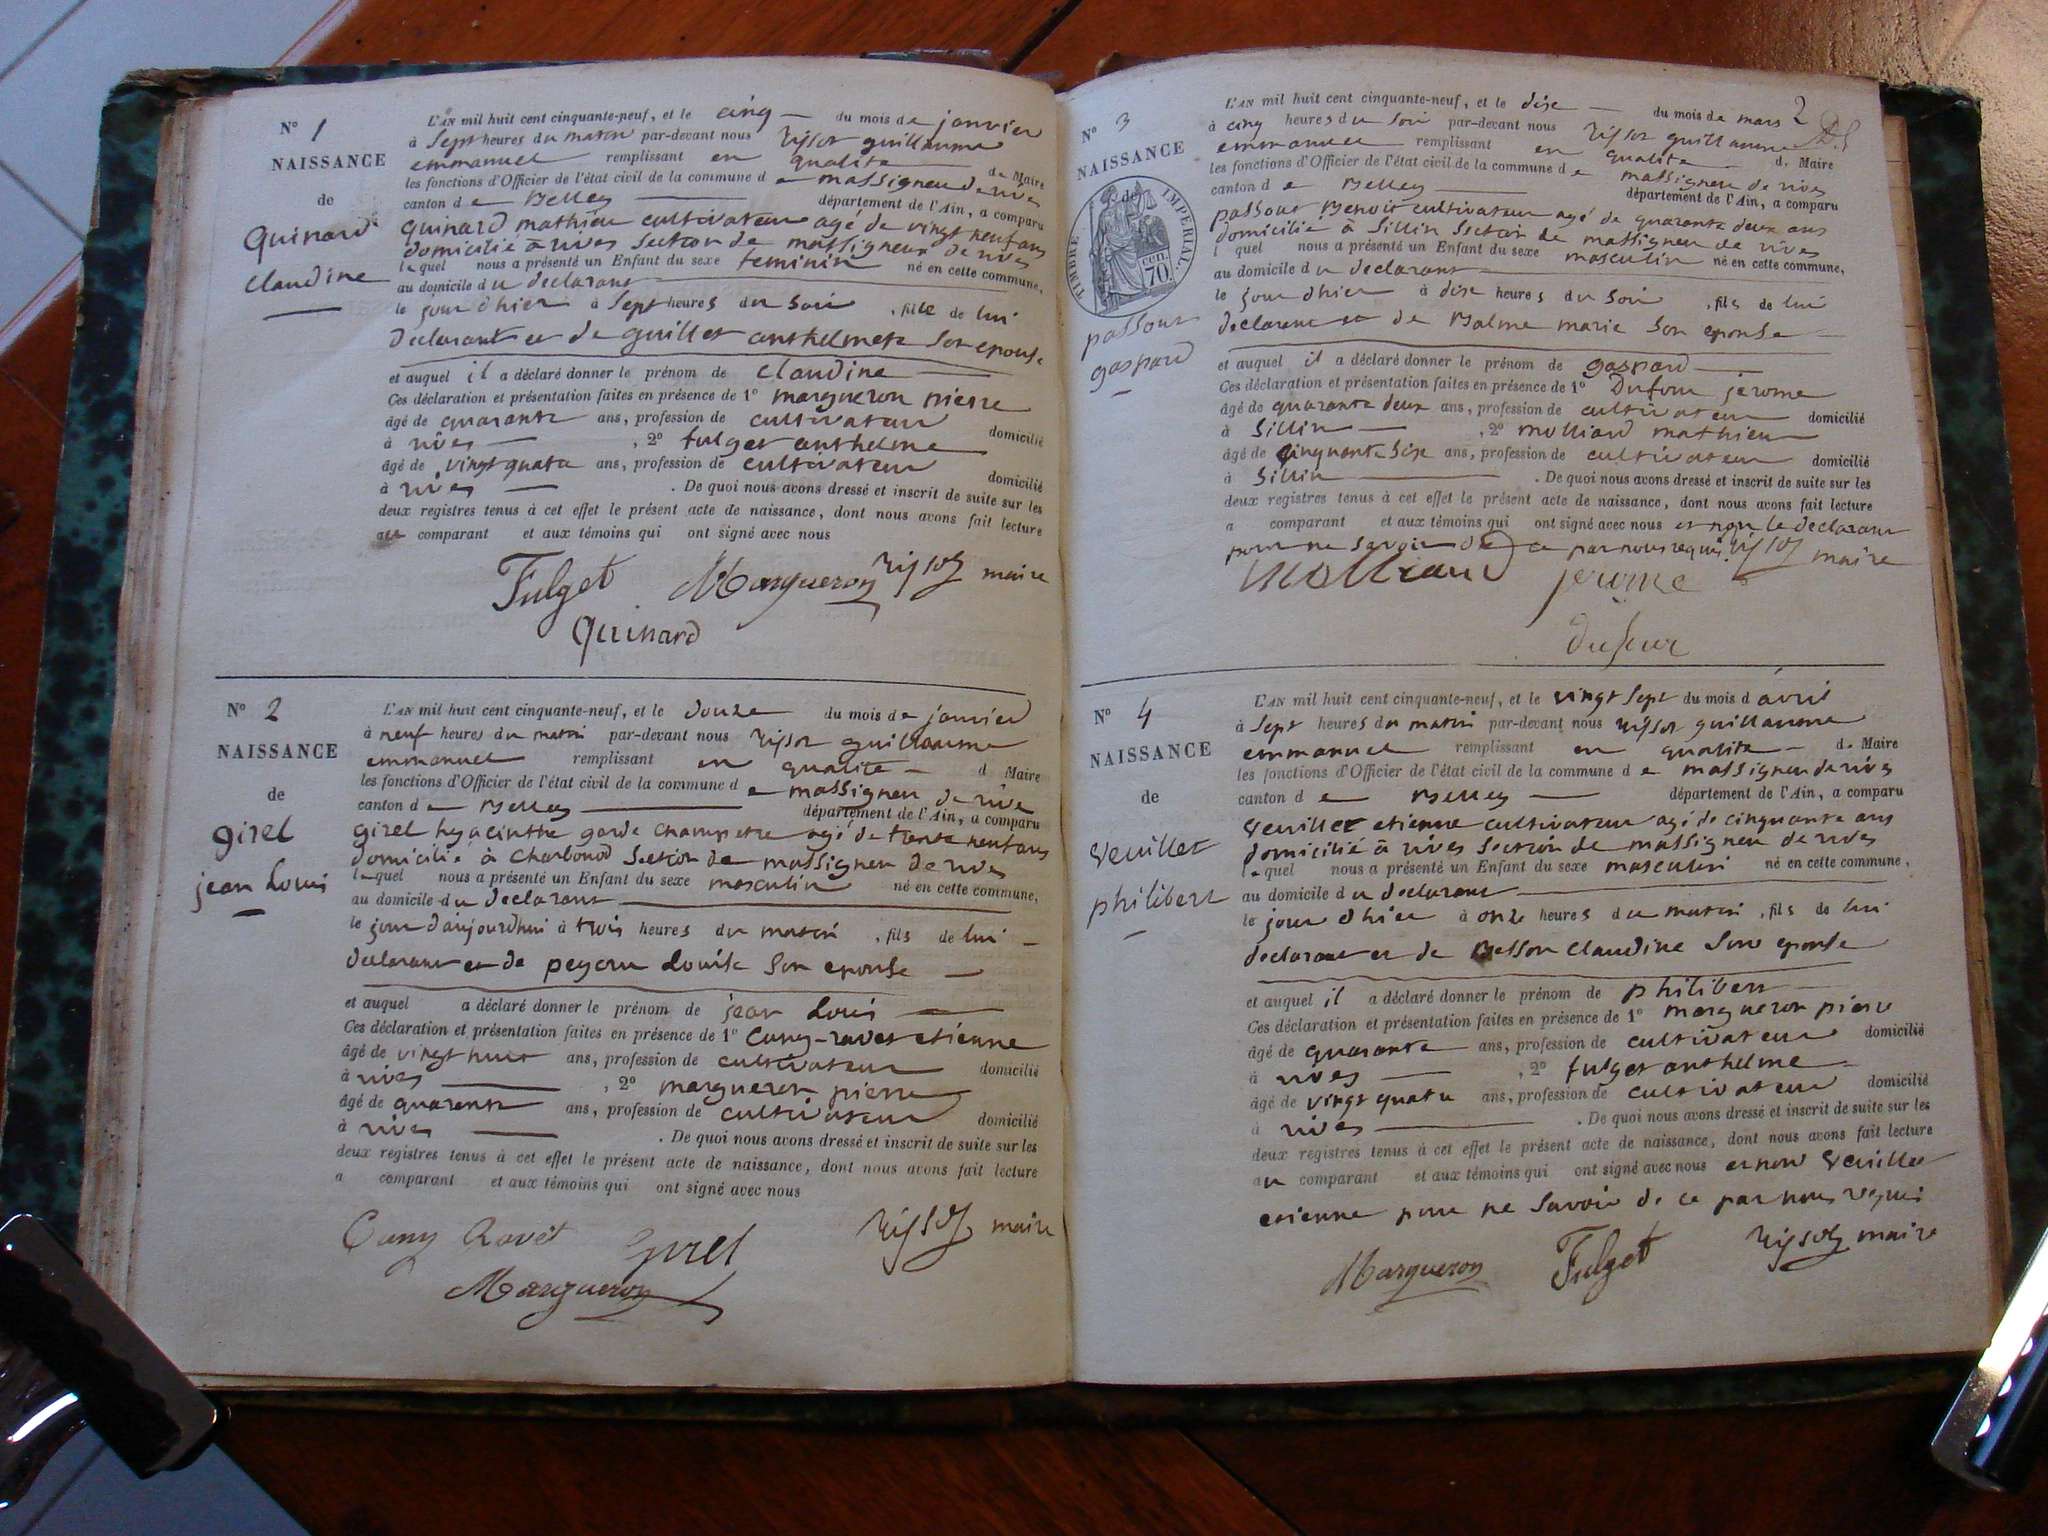 N° 1
NAISSANCE
de
Quinard
Claudine
L'AN mil huit cent cinquante-neuf, et le cinq du mois de janvier
à Sept heures du matin par-devant nous Rissoz guillaume
emmanuel remplissant en qualite de Maire
les fonctions d'Officier de l'état civil de la commune de massigneu de rives
canton de Belley département de l'Ain, a comparu
Quinard mathieu cultivateur agé de vingt neuf ans
domicilié à rives Section de massigneu de rives
lequel nous a présenté un Enfant du sexe feminin né en cette commune,
au domicile du declarant
le jour d'hier à Sept heures du Soir , fille de lui
declarant et de guillet anthelmete Son epouse
et auquel il a déclaré donner le prénom de Claudine
Ces déclaration et présentation faites en présence de 1° margueron pierre
âgé de quarante ans, profession de cultivateur domicilié
à rives , 2° fulget anthelme
âgé de vingt quatre ans, profession de cultivateur domicilié
à rives . De quoi nous avons dressé et inscrit de suite sur les
deux registres tenus à cet effet le présent acte de naissance, dont nous avons fait lecture
au comparant et aux témoins qui ont signé avec nous
Fulget Margueron Rissoz maire
Quinard
N° 2
NAISSANCE
de
girel
jean Louis
L'AN mil huit cent cinquante-neuf, et le douze du mois de janvier
à neuf heures du matin par-devant nous Rissoz guillaume
emmanuel remplissant en qualite d Maire
les fonctions d'Officier de l'état civil de la commune de massigneu de rive
canton de Belley département de l'Ain, a comparu
girel hyacinthe garde champetre agé de trente neuf ans
domicilié à Charbonod Section de massigneu de rives
lequel nous a présenté un Enfant du sexe masculin né en cette commune,
au domicile du declarant
le jour d'aujourd'hui à trois heures du matin , fils de lui
declarant et de peyson Louise Son epouse
et auquel a déclaré donner le prénom de jean Louis
Ces déclaration et présentation faites en présence de 1° Cuny-ravet etienne
âgé de vingt huit ans, profession de cultivateur domicilié
à rives , 2° margueron pierre
âgé de quarente ans, profession de cultivateur domicilié
à rives . De quoi nous avons dressé et inscrit de suite sur les
deux registres tenus à cet effet le présent acte de naissance, dont nous avons fait lecture
a comparant et aux témoins qui ont signé avec nous
Cuny Ravet Girel Rissoz maire
Margueron
2
N° 3
NAISSANCE
de
TIMBRE IMPÉRIAL.
CEN. 70
passout
gaspard
L'AN mil huit cent cinquante-neuf, et le dise du mois de mars
à cinq heures du Soir par-devant nous Rissoz guillaume
emmanuel remplissant en qualite d. Maire
les fonctions d'Officier de l'état civil de la commune de massigneu de rives
canton de Belley département de l'Ain, a comparu
passout Benoit cultivateur agé de quarante deux ans
domicilié à Sillin Section de massigneu de rives
l quel nous a présenté un Enfant du sexe masculin né en cette commune,
au domicile du declarant
le jour d'hier à dise heures du Soir , fils de lui
declarant et de Balme marie Son epouse
et auquel il a déclaré donner le prénom de gaspard
Ces déclaration et présentation faites en présence de 1° Dufour jerome
âgé de quarante deux ans, profession de cultivateur domicilié
à Sillin , 2° molliard mathieu
âgé de Cinquante Sise ans, profession de cultivateur domicilié
à Sillin . De quoi nous avons dressé et inscrit de suite sur les
deux registres tenus à cet effet le présent acte de naissance, dont nous avons fait lecture
a comparant et aux témoins qui ont signé avec nous et non le declarant
pour ne Savoir de ce par nous requis Rissoz maire
Molliard jerome
dufour
N° 4
NAISSANCE
de
Veuillet
philibert
L'AN mil huit cent cinquante-neuf, et le vingt Sept du mois d avril
à Sept heures du matin par-devant nous Rissoz guillaume
emmanuel remplissant en qualite d. Maire
les fonctions d'Officier de l'état civil de la commune de massigneu de rives
canton de Belley département de l'Ain, a comparu
Veuillet etienne cultivateur agé de cinquante ans
domicilié à rives Section de massigneu de rives
lequel nous a présenté un Enfant du sexe masculin né en cette commune,
au domicile du declarant
le jour d'hier à onze heures du matin , fils de lui
declarant et de Besson Claudine Son epouse
et auquel il a déclaré donner le prénom de philibert
Ces déclaration et présentation faites en présence de 1° margueron pierre
âgé de quarante ans, profession de cultivateur domicilié
à rives , 2° fulget anthelme
âgé de vingt quatre ans, profession de cultivateur domicilié
à rives . De quoi nous avons dressé et inscrit de suite sur les
deux registres tenus à cet effet le présent acte de naissance, dont nous avons fait lecture
au comparant et aux témoins qui ont signé avec nous et non Veuillet
etienne pour ne Savoir de ce par nous requis
Margueron Fulget Rissoz maire